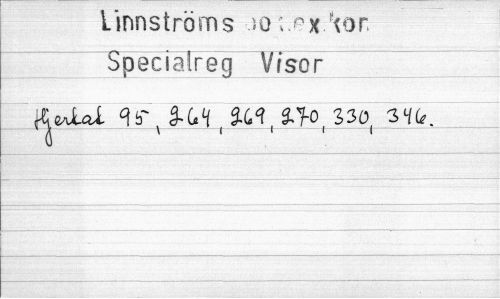 Linnströms
Specialreg Visor
Hjertat 95, 264, 269, 270, 330, 346.